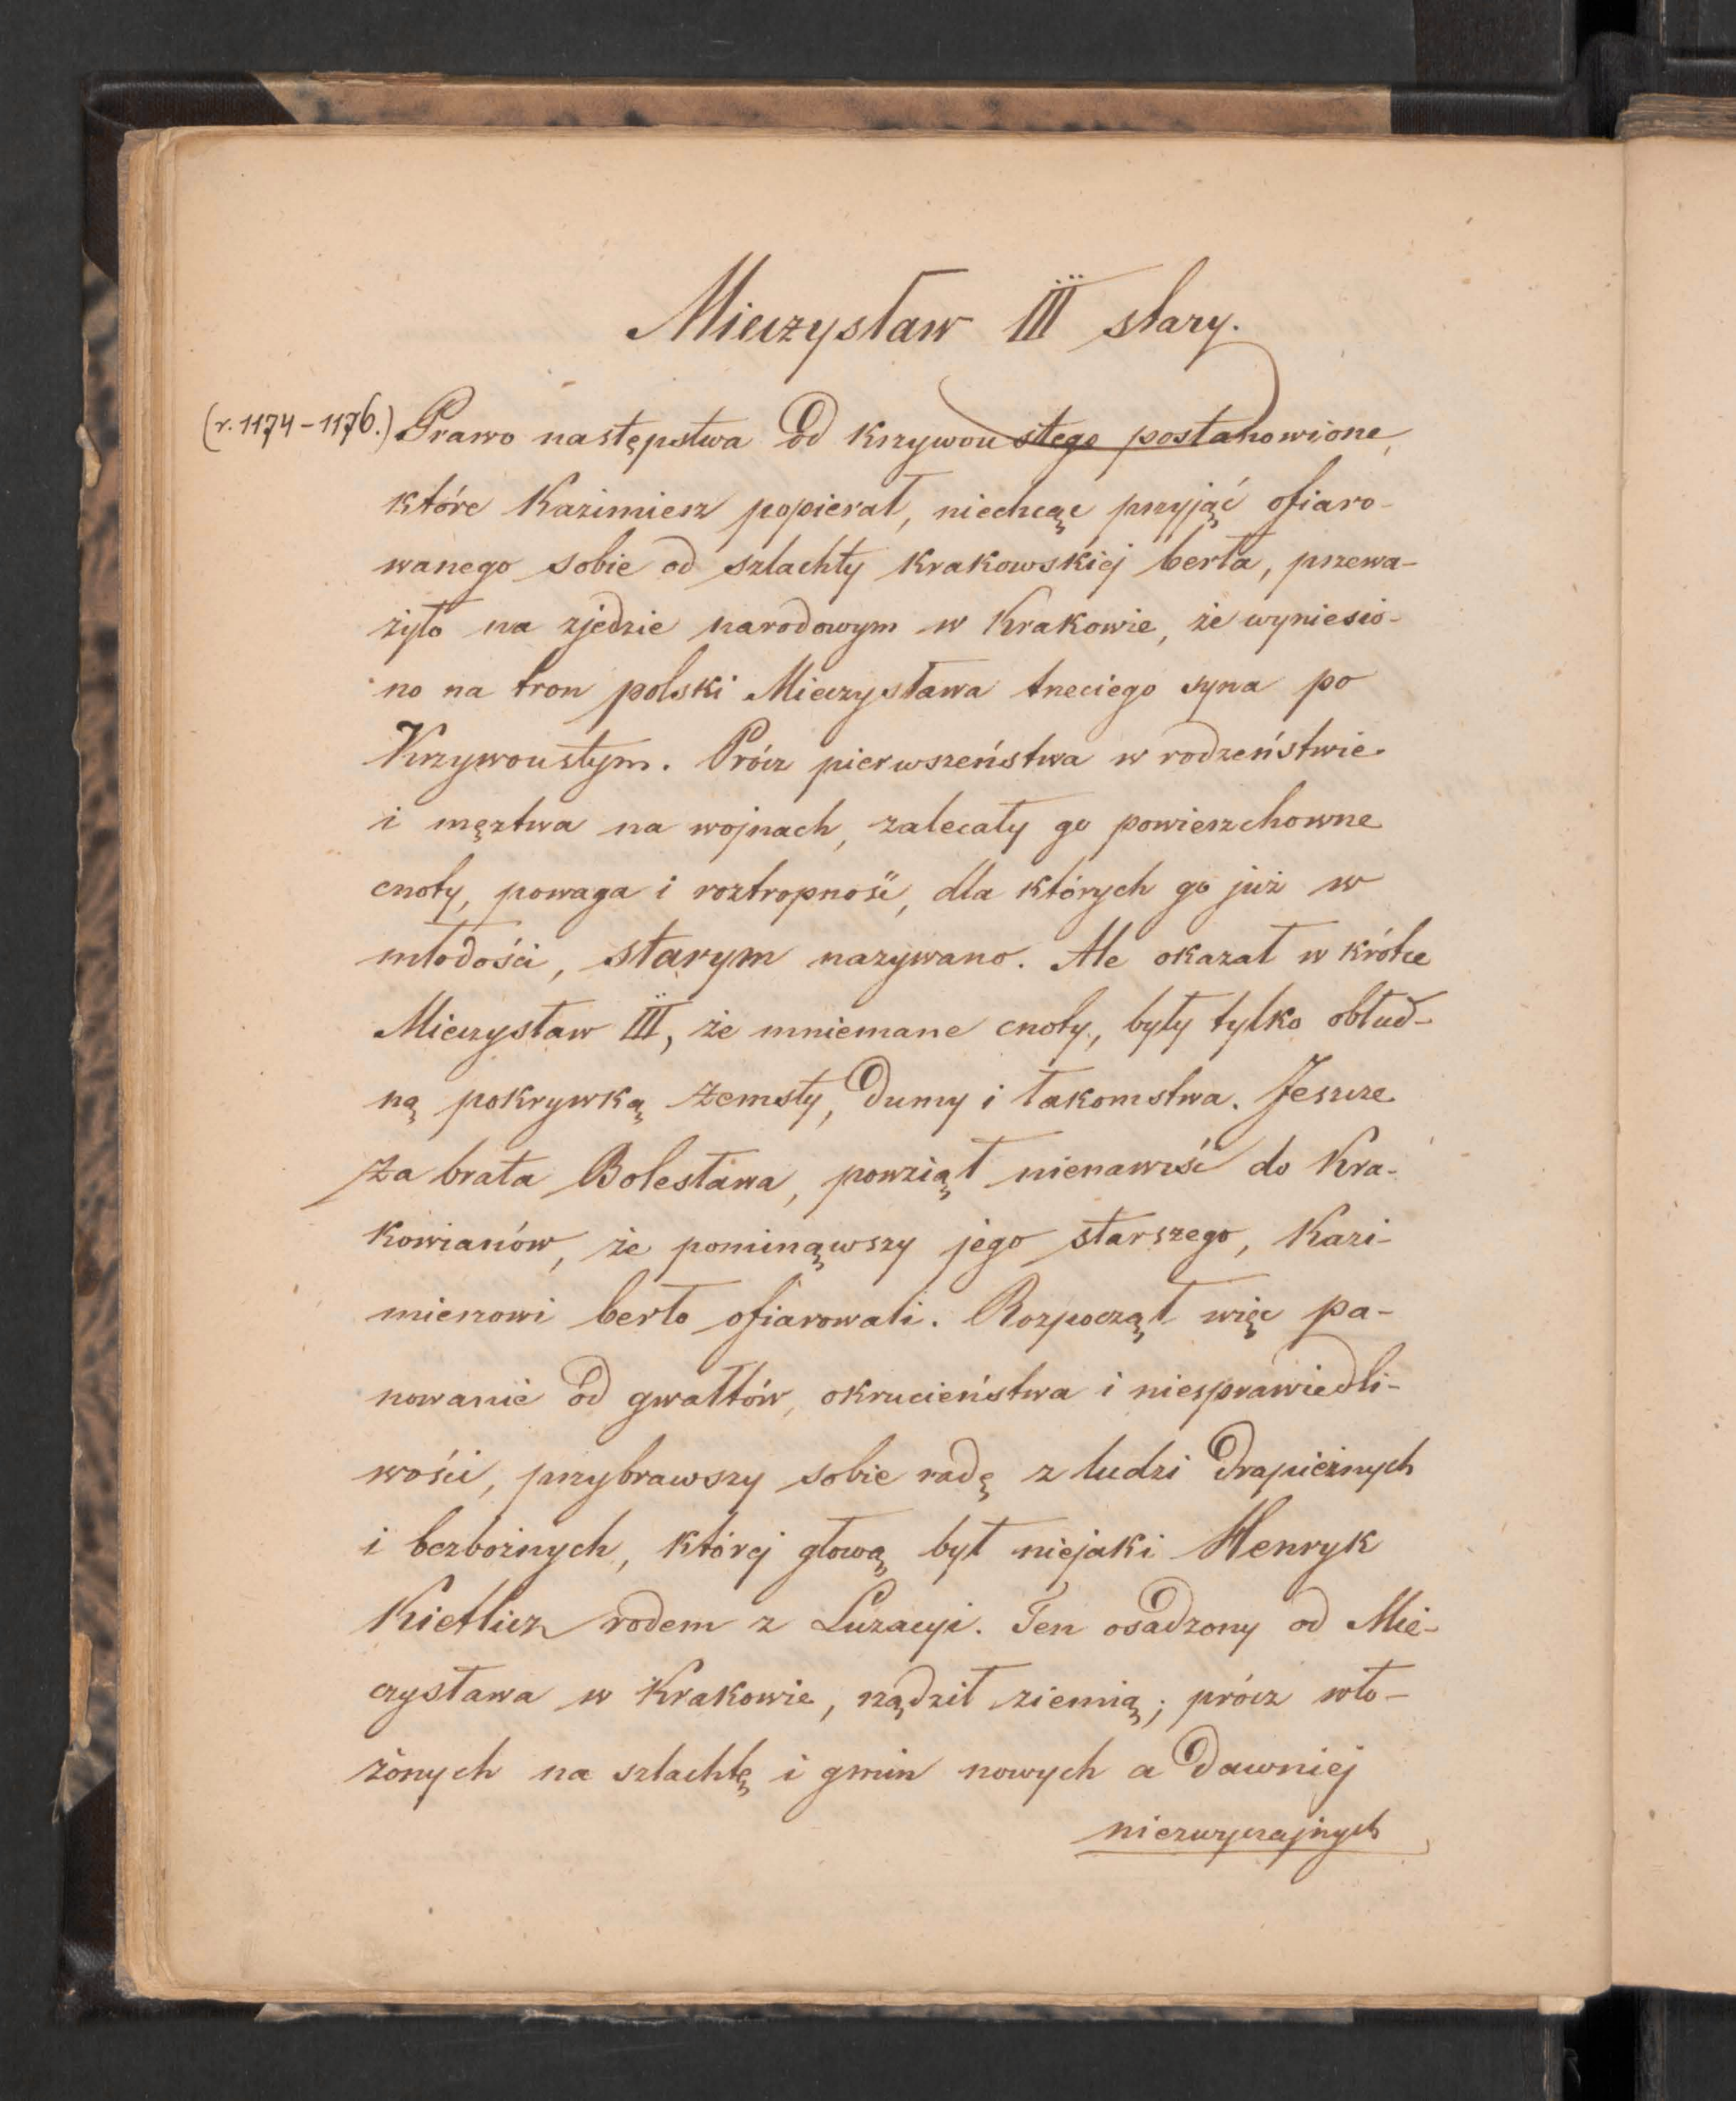 Mieczysław III stary.
(r. 1174-1176.) Prawo następstwa od krzywoustego postanowione,
które Kazimierz popierał, niechcąc przyjąć ofiaro-
wanego sobie od szlachty krakowskiéj berła, przewa-
żyło na zjedzie narodowym w Krakowie, że wyniesio-
no na tron polski Mieczysława trzeciego syna po
Krzywoustym. Prócz pierwszeństwa w rodzeństwie
i męztwa na wojnach, zalecały go powierzchowne
cnoty, powaga i roztropność, dla których go już w
młodości, starym nazywano. Ale okazał w krótce
Mieczysław III, że mniemane cnoty, były tylko obłud-
ną pokrywką zemsty, dumy i łakomstwa. Jeszcze
za brata Bolesława, powziął nienawiść do Kra-
kowianów, że pominąwszy jego starszego, Kazi-
mierzowi berło ofiarowali. Rozpoczął więc pa-
nowanie od gwałtów, okrucieństwa i niesprawiedli-
wości, przybrawszy sobie radę z ludzi drapieżnych
i bezbożnych, któréj głową był niejaki Henryk
Kietlicz rodem z Luzacyi. Ten osadzony od Mie-
czysława w Krakowie, rządził ziemią; prócz wło-
żonych na szlachtę i gmin nowych a dawniéj
niezwyczajnych